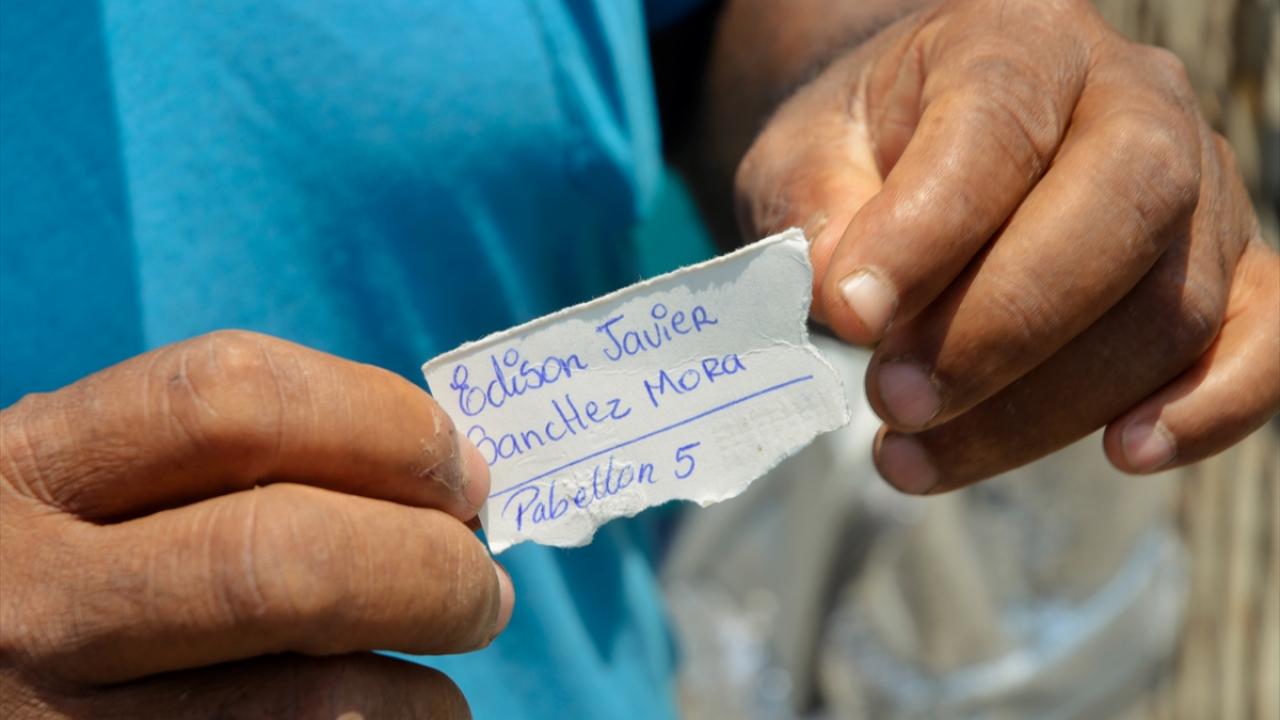 Edison Javier
Sanchez Mora
Pabellon 5